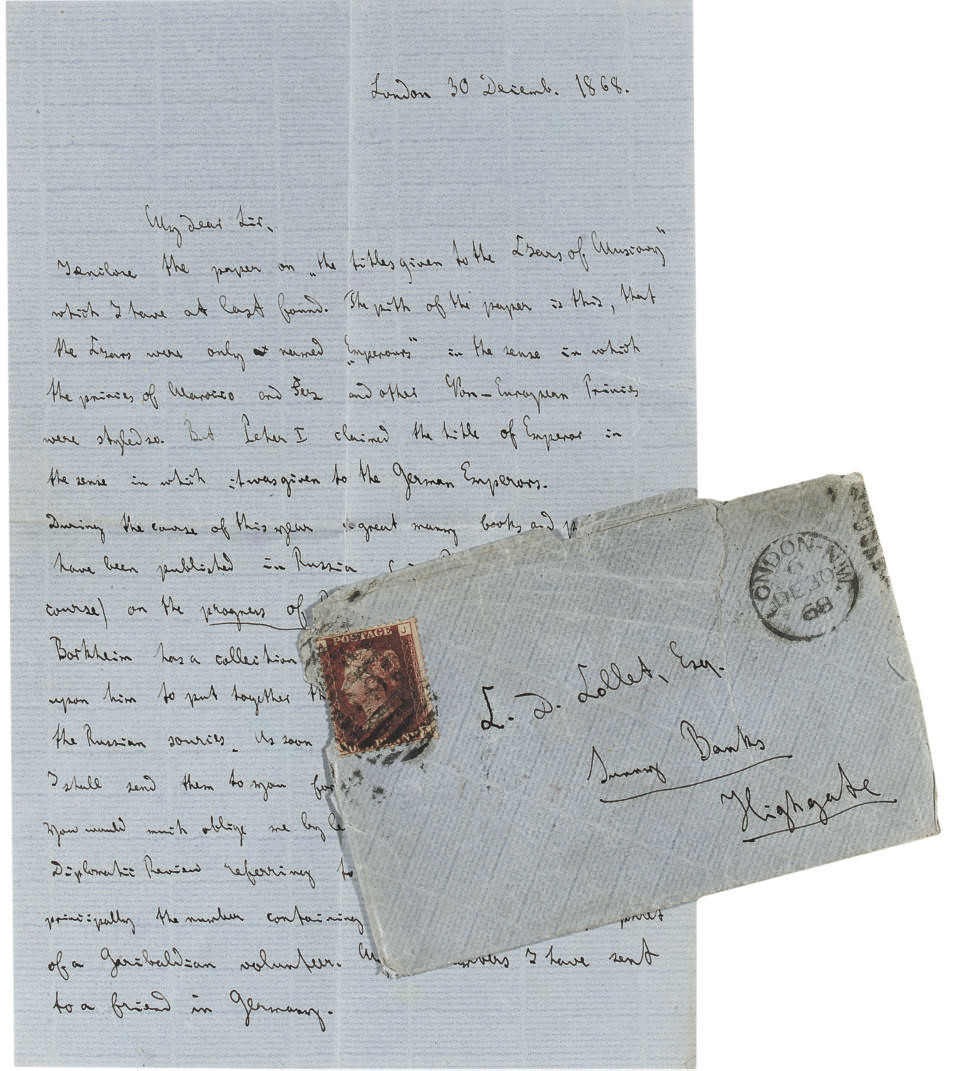 London 30 Decemb. 1868.
My dear Sir,
I enclose the paper on "the titles given to the Czars of Muscovy"
which I have at last found. The pith of the paper is this, that
the Czars were only named "Emperours" in the sense in which
the princes of Marocco and Fez and other Non-European Princes
were styled so. But Peter I claimed the title of Emperor in
the sense in which it was given to the German Emperors.
During the course of this year a great many books and
have been published in Russia
course) on the progress of
Borkheim has a collection
upon him to put together
the Russian sources. As soon
I shall send them to you for
You would much oblige me by
Diplomatic Review referring to
principally the number containing
of a Garibaldian volunteer. I have sent
to a friend in Germany.
POSTAGE
J
LONDON-N.W.
DE 30
68
C. D. Collet, Esq.
Sunny Banks
Highgate